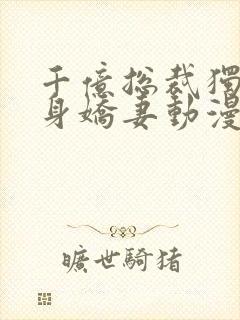 千億總裁獨
身嬌妻動漫
曠世騎豬